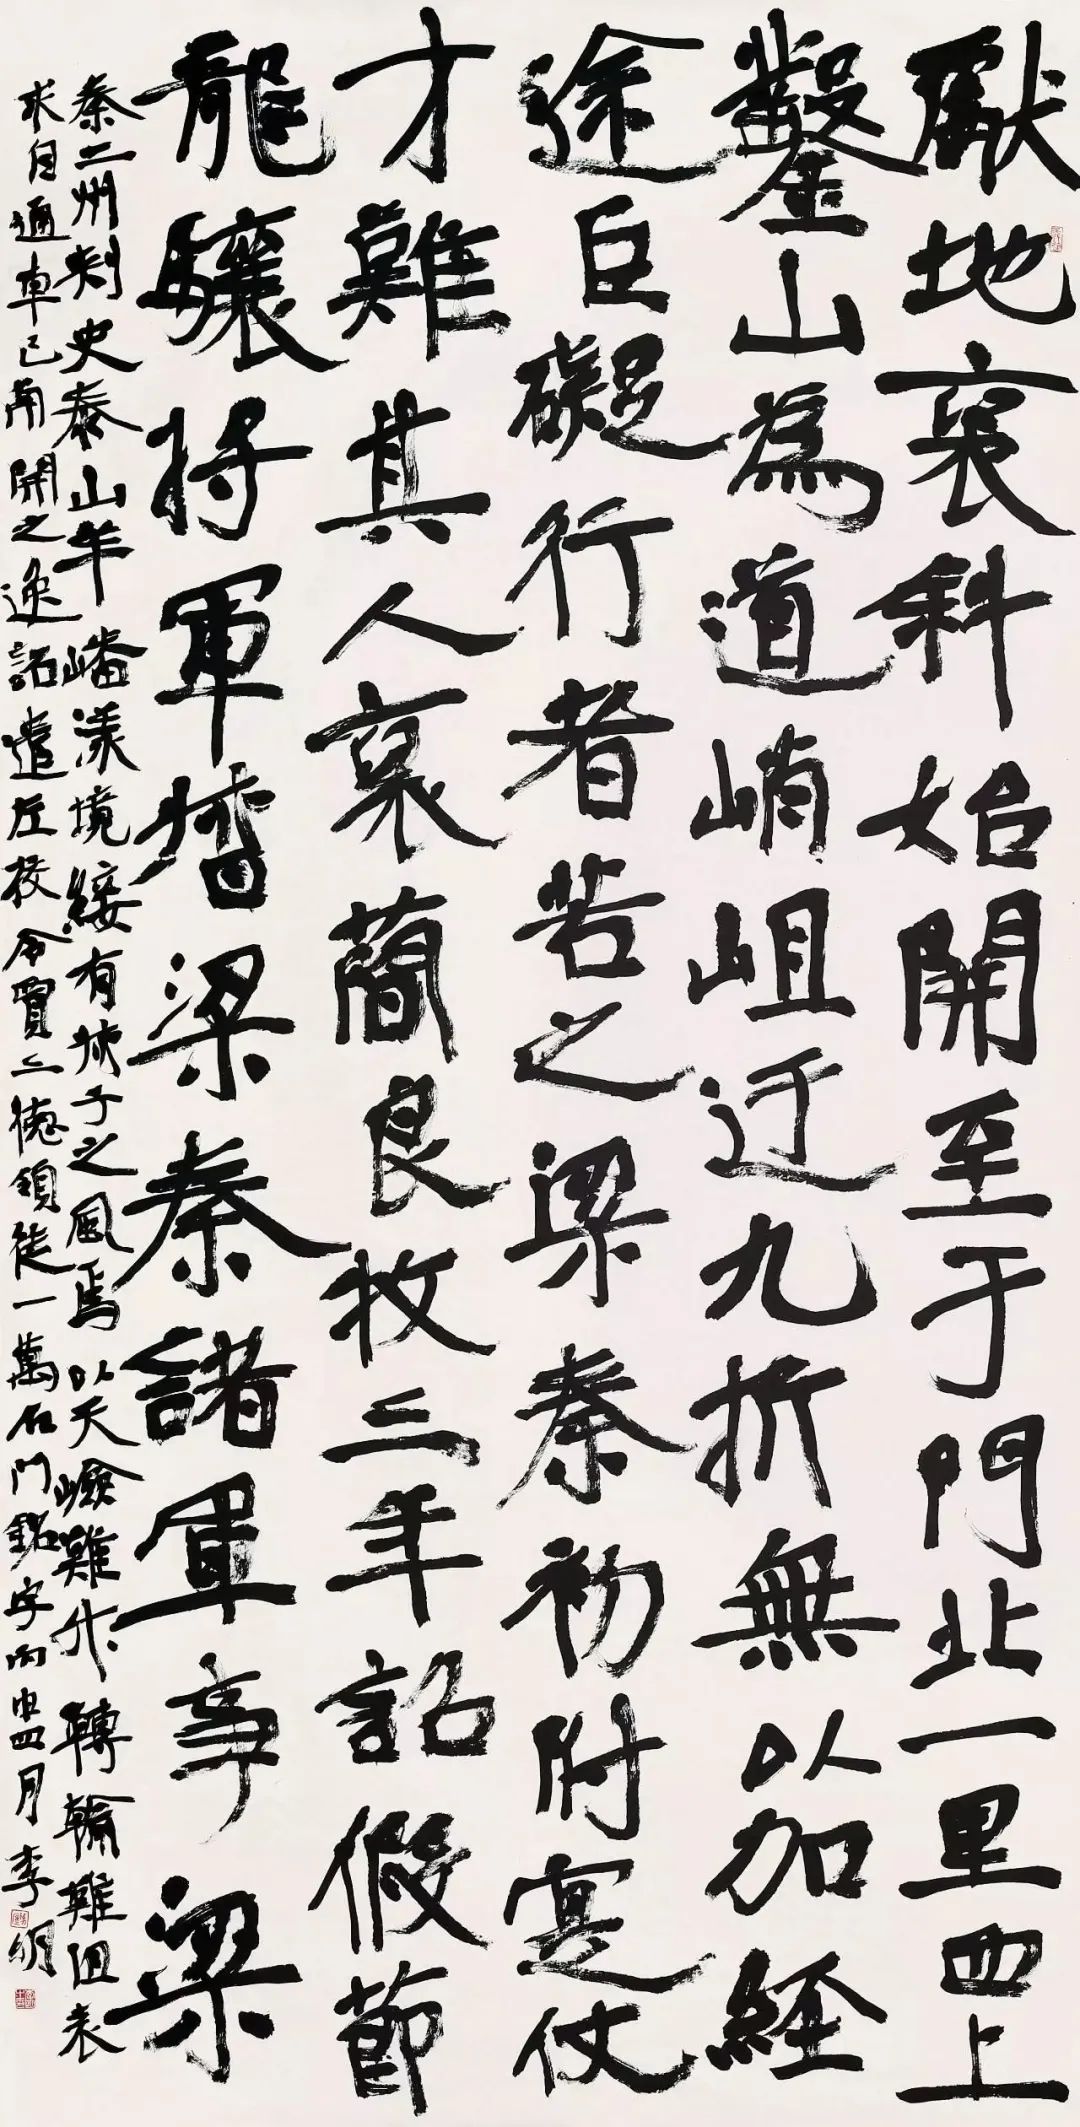 獻地褒斜始開至于門北一里西上
鑿山為道峭岨迂九折無以加經
途巨礙行者苦之梁秦初附寔仗
才難其人褒蕳良牧三年詔假節
龍驤將軍督梁秦諸軍事梁
秦二州刺史泰山羊嶓漾境綏有叔子之風焉以天嶮難升轉輸難阻表
求自迴車已南開之逸詔遣左校令賈三德領徒一萬石門銘字丙申四月李明